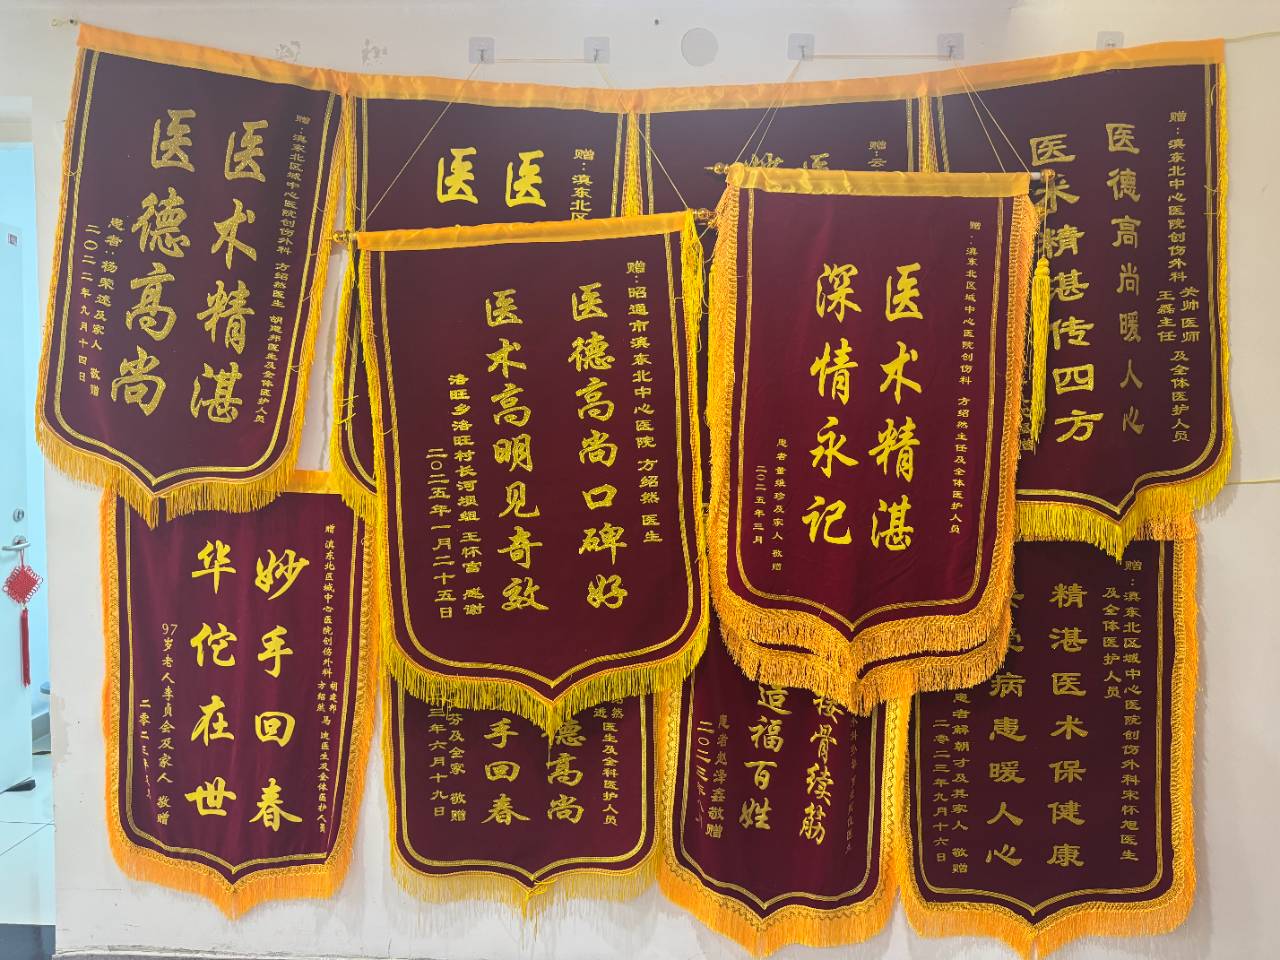 赠:滇东北区域中心医院创伤外科 方绍然医生 胡建邦医生及全体医护人员
医术精湛
医德高尚
患者:杨荣莲及家人 敬赠
二〇二二年九月十四日
赠:滇东北区
医
医
赠:云
医
赠:滇东北中心医院创伤外科 关帅医师 王磊主任 及全体医护人员
医德高尚暖人心
医术精甚传四方
赠:昭通市滇东北中心医院 方绍然 医生
医德高尚口碑好
医术高明见奇效
洛旺乡洛旺村长河坝组 王怀富 感谢
二〇二五年一月二十五日
赠:滇东北区域中心医院创伤科 方绍然主任及全体医护人员
医术精湛
深情永记
患者 董维珍及家人 敬赠
二〇二五年三月
赠 滇东北区域中心医院创伤外科 胡建邦 方绍然 马迪医生及全体医护人员
妙手回春
华佗在世
97岁老人李贞会及家人 敬赠
二零二三年
然 医生及全科医护人员
德高尚
手回春
芬及全家 敬赠
三年六月十九日
接骨续筋
造福百姓
患者赵泽鑫敬赠
二〇二三年八
赠:滇东北区域中心医院创伤外科宋怀旭医生
及全体医护人员
精湛医术保健康
病患暖人心
患者解朝才及其家人 敬赠
二零二三年九月十六日